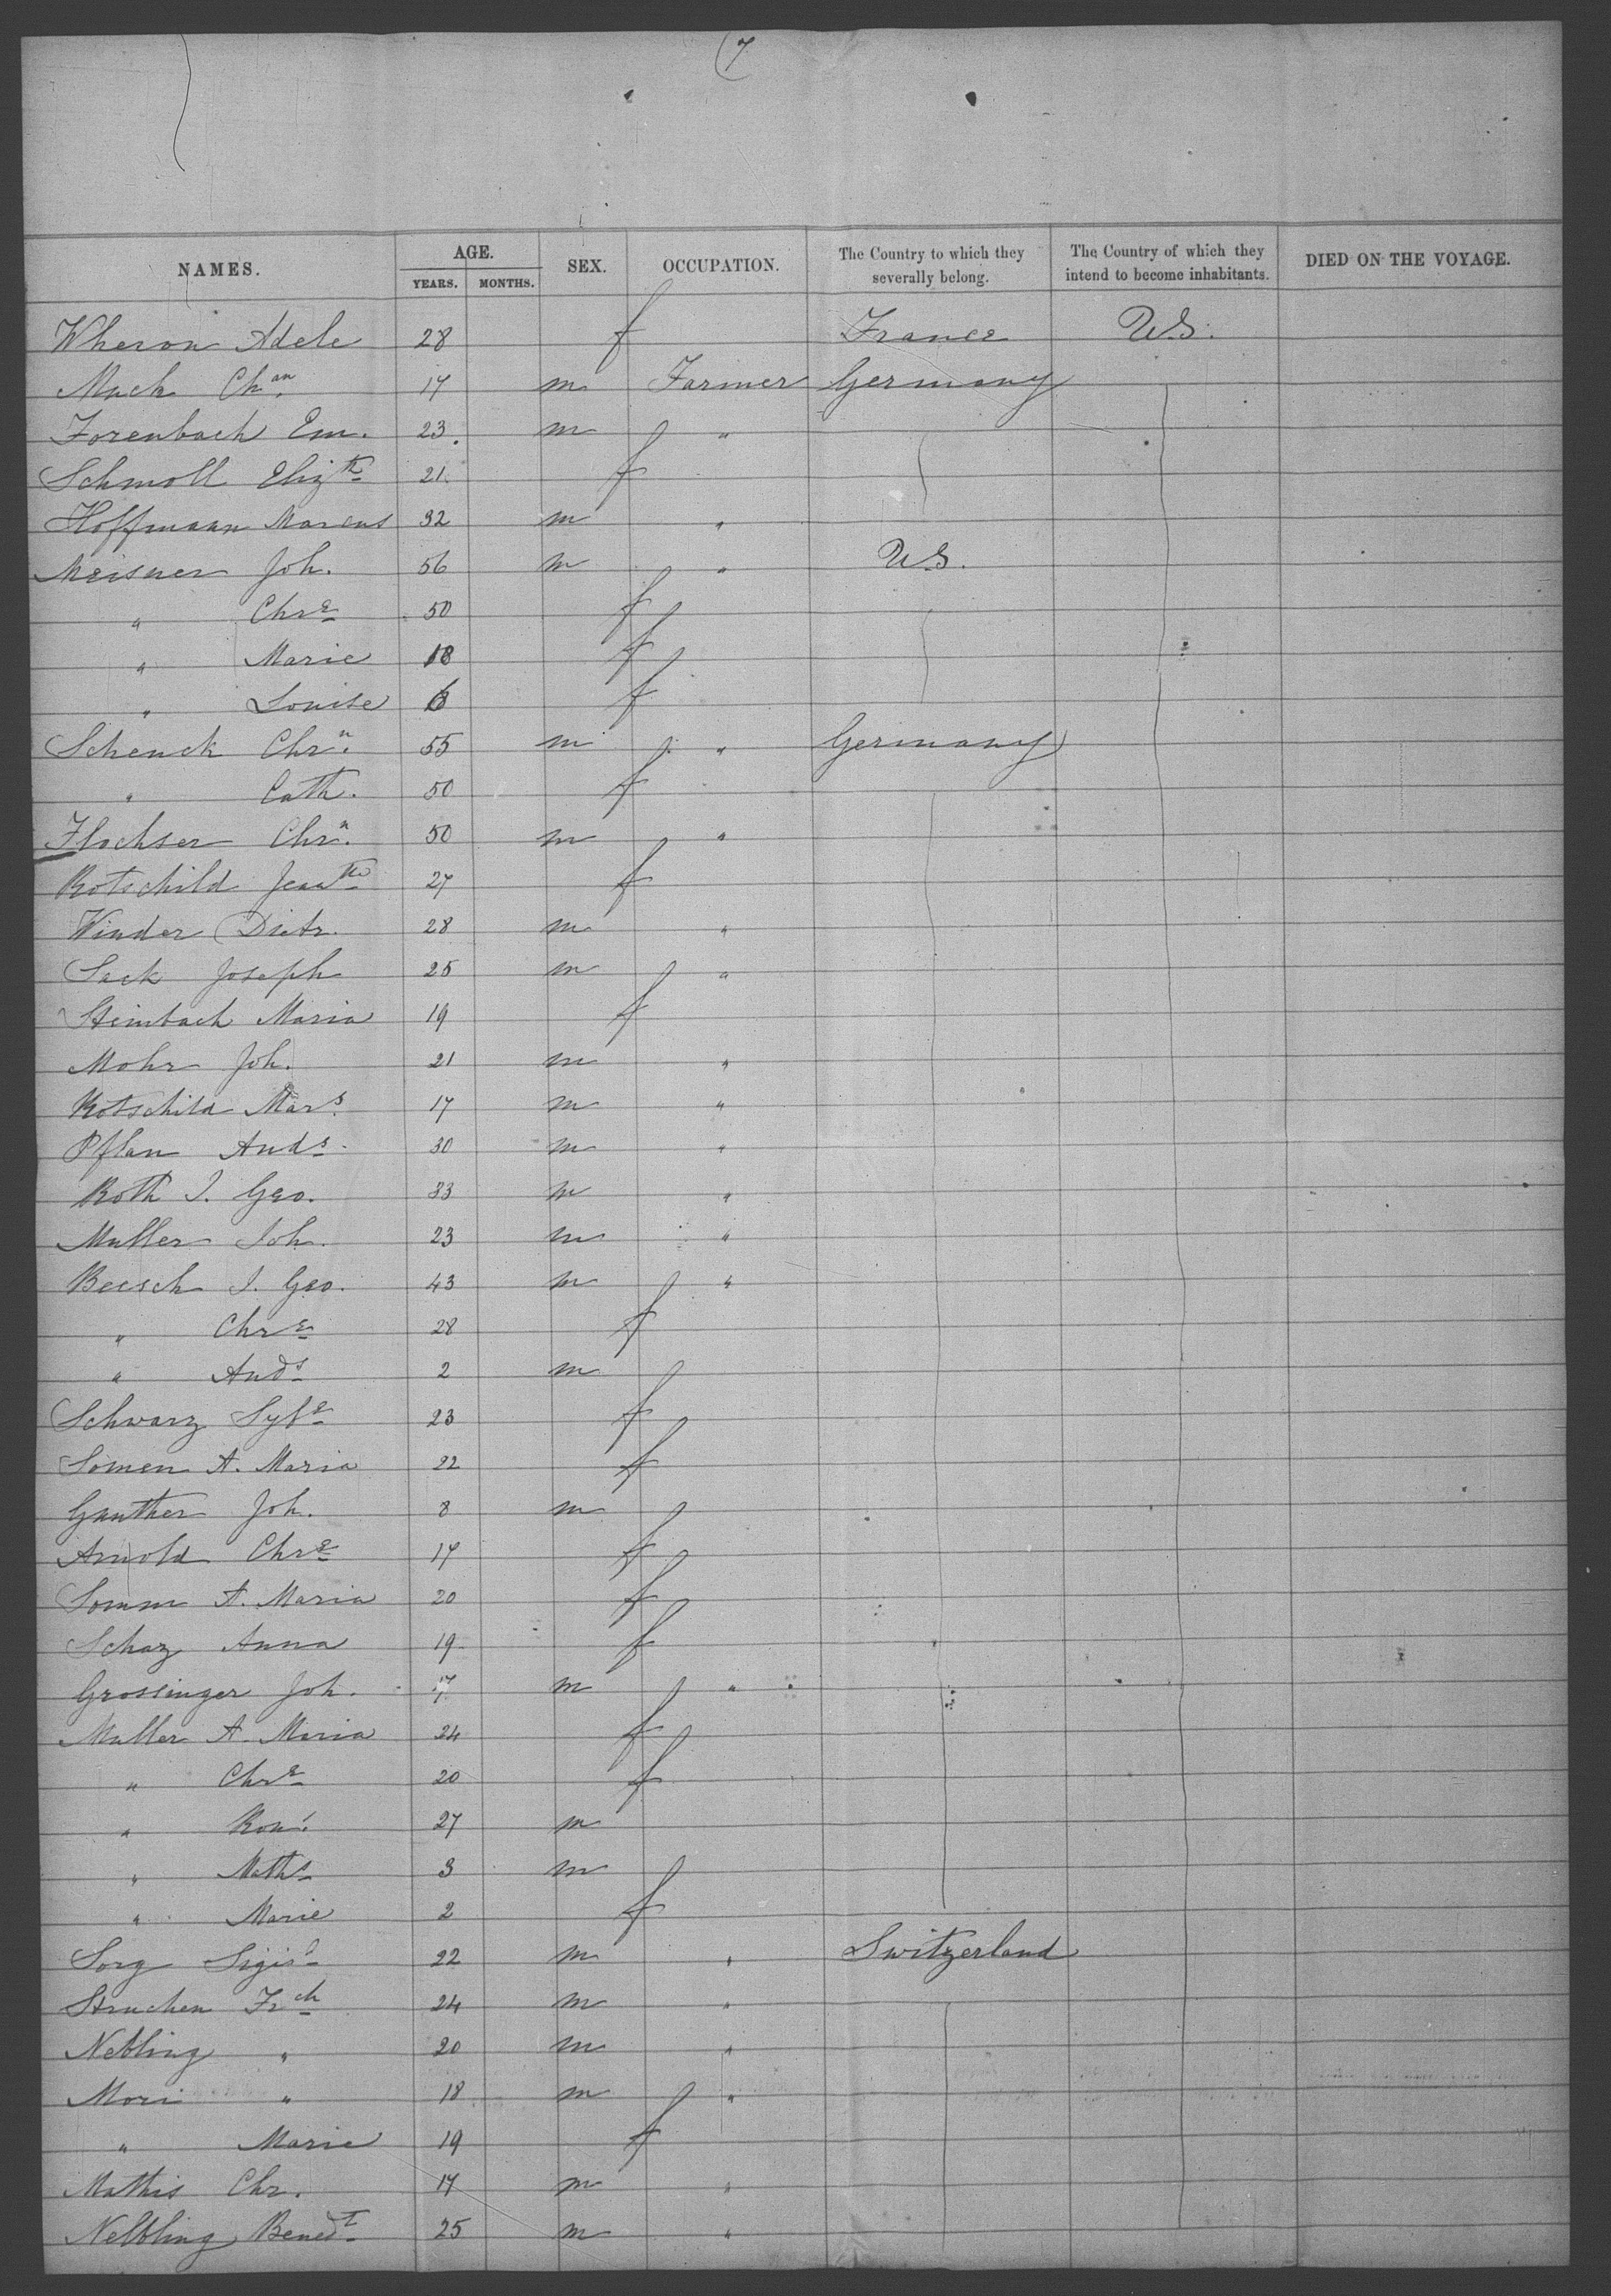 (7
NAMES. AGE. YEARS. MONTHS. SEX. OCCUPATION. The Country to which they severally belong. The Country of which they intend to become inhabitants. DIED ON THE VOYAGE.
Wheron Adele 28 f France U.S.
Muck Chan. 17 m Farmer Germany
Forenbach Em. 23. m "
Schmoll Elizth 21. f
Hoffmann Marcus 32 m "
Meisner Joh. 56 m " U.S.
" Chre 50 f
" Marie 18 f
" Louise 6 f
Schenck Chrn. 55 m " Germany
" Cath. 50 f
Flochser Chrn. 50 m "
Rotschild Jeantte 27 f
Winder Dietr. 28 m "
Sack Joseph 25 m "
Steinbach Maria 19 f
Mohr Joh. 21 m "
Rotschild Mars. 17 m "
Pflan Ands. 30 m "
Roth J. Geo. 33 m "
Muller Joh. 23 m "
Beesch J. Geo. 43 m "
" Chre 28 f
" Ands 2 m
Schwarz Sybe 23 f
Somen A. Maria 22 f
Gunther Joh. 8 m
Arnold Chre 17 f
Somm A. Maria 20 f
Schaz Anna 19 f
Grossinger Joh. 17 m "
Muller A. Maria 24 f
" Chre 20 f
" Kond. 27 m
" Maths 3 m
" Marie 2 f
Sorg Sigisd 22 m " Switzerland
Struchen Frch 24 m "
Nebling " 20 m "
Mori " 18 m "
" Marie 19 f
Mathis Chr. 17 m "
Nelbling Benedt 25 m "